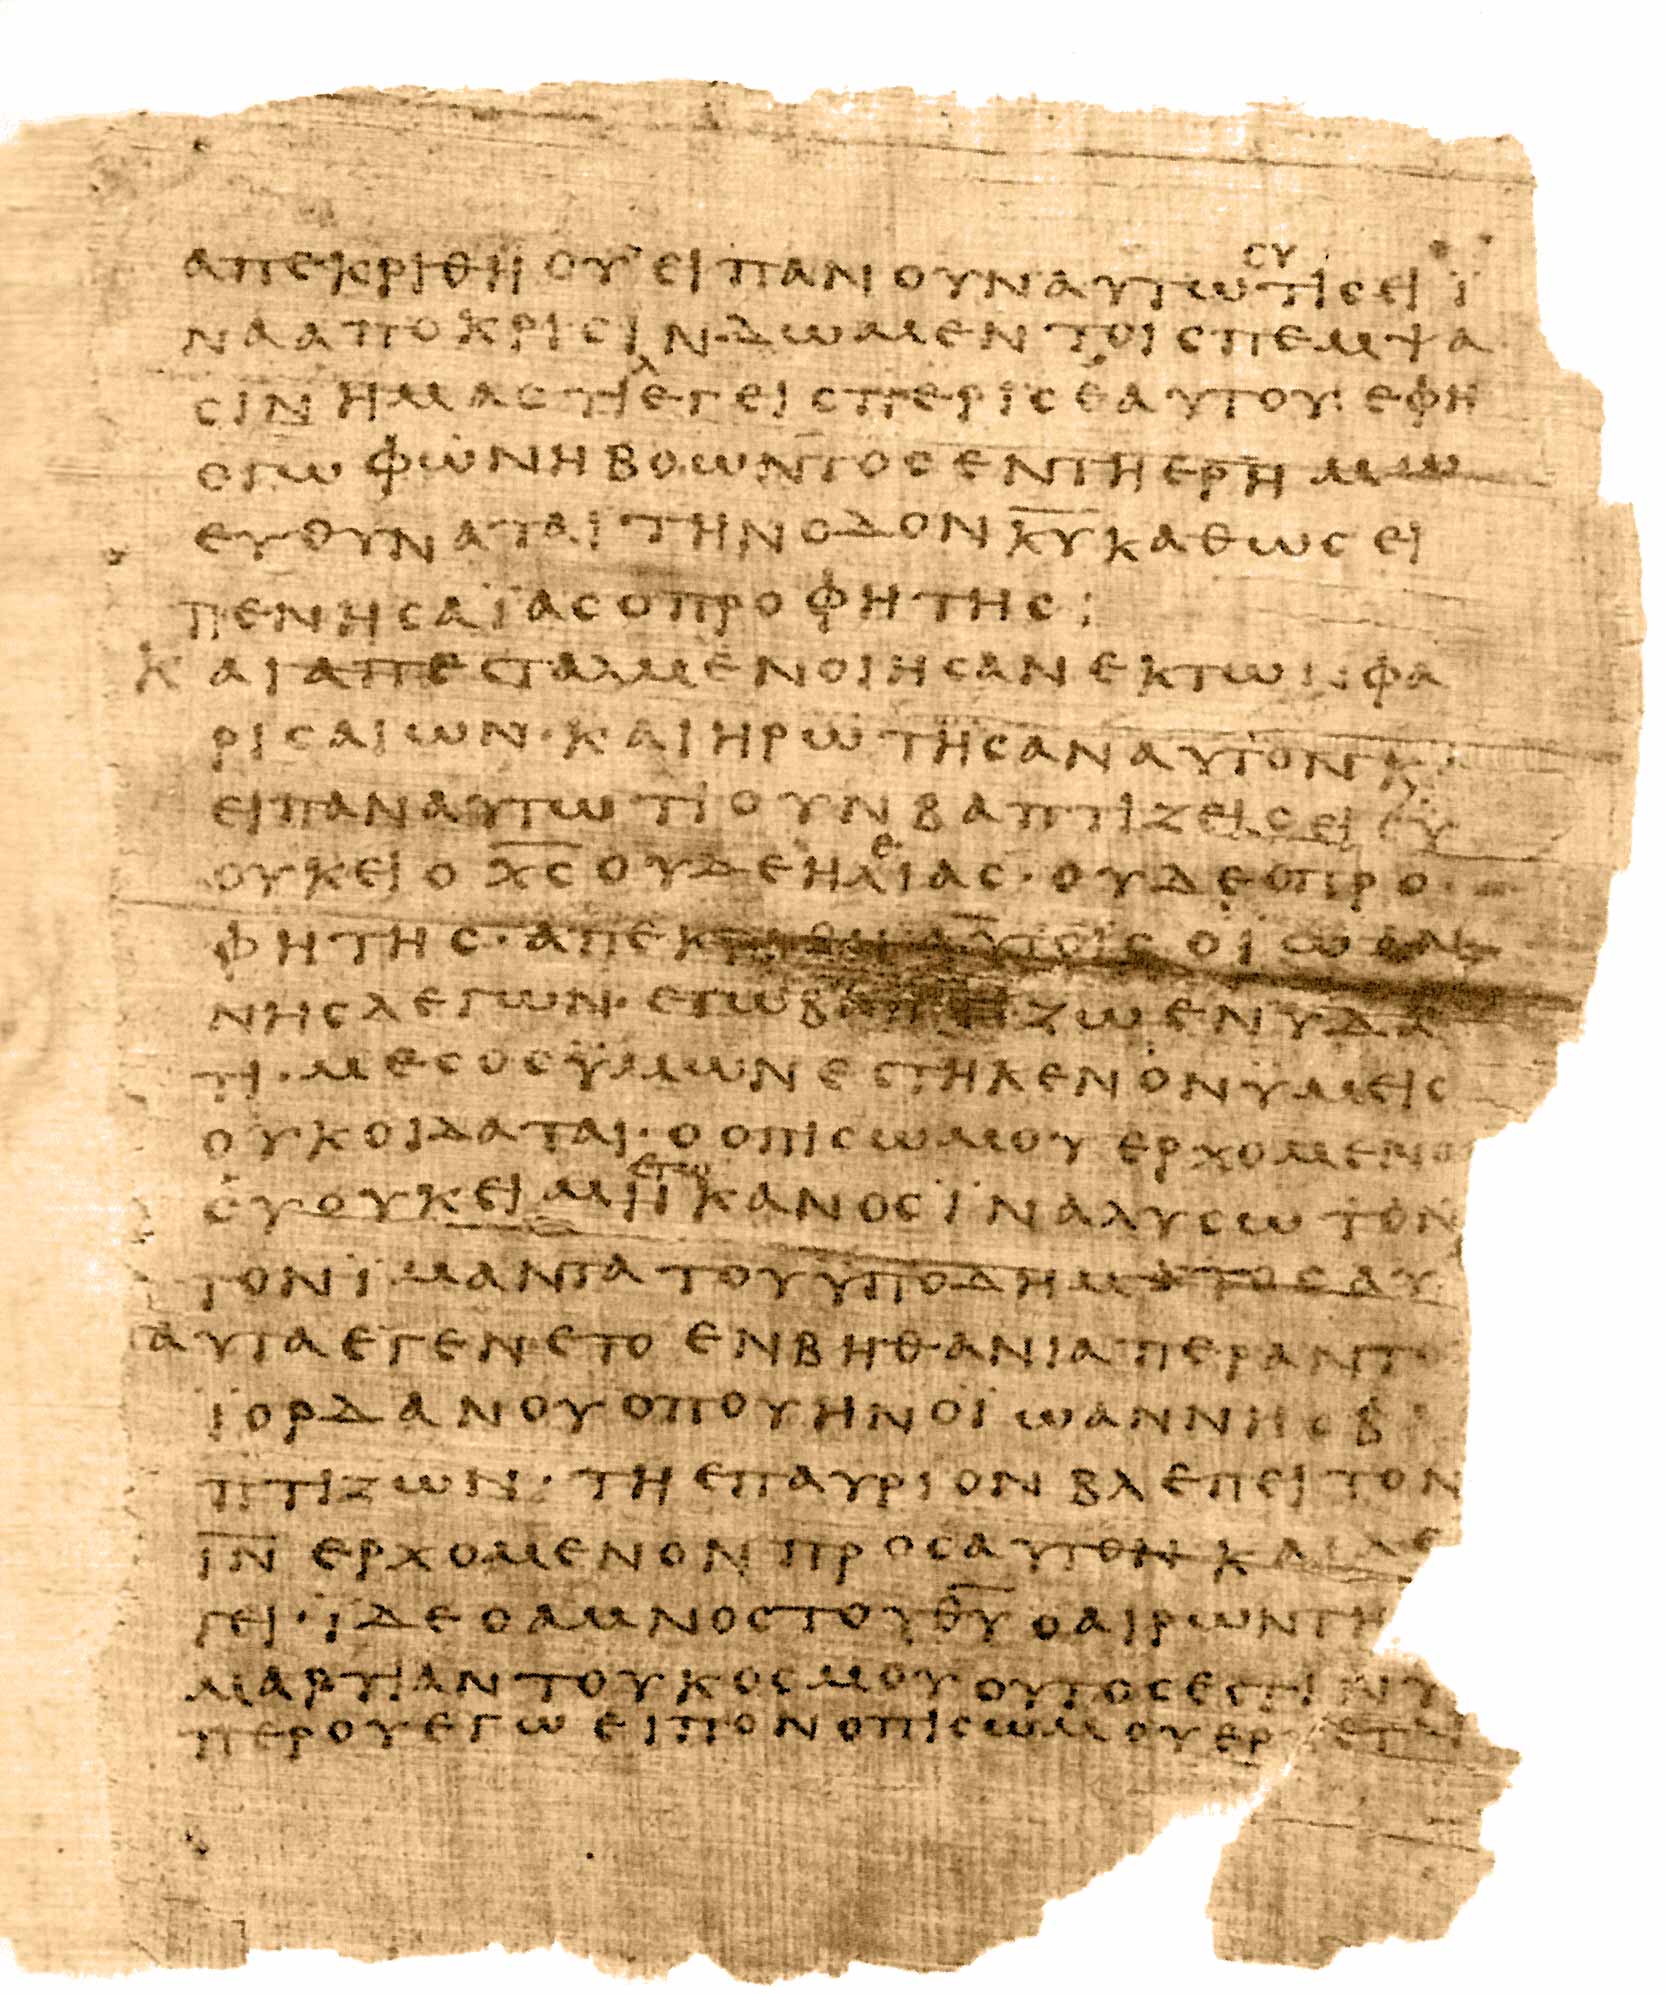 ΑΠΕΚΡΙΘΗ ΟΥ ΕΙΠΑΝ ΟΥΝ ΑΥΤΩ ΣΥ ΤΙϹ ΕΙ Ϊ
ΝΑ ΑΠΟΚΡΙϹΙΝ ΔΩΜΕΝ ΤΟΙϹ ΠΕΜΨΑ
ϹΙΝ ΗΜΑϹ ΤΙ ΛΕΓΕΙϹ ΠΕΡΙ ϹΕΑΥΤΟΥ· ΕΦΗ
ΕΓΩ ΦΩΝΗ ΒΟΩΝΤΟϹ ΕΝ ΤΗ ΕΡΗΜΩ
ΕΥΘΥΝΑΤΑΙ ΤΗΝ ΟΔΟΝ Κ̅Υ̅ ΚΑΘΩϹ ΕΙ
ΠΕΝ ΗϹΑΪΑϹ Ο ΠΡΟΦΗΤΗϹ :
ΚΑΙ ΑΠΕϹΤΑΛΜΕΝΟΙ ΗϹΑΝ ΕΚ ΤΩΝ ΦΑ
ΡΙϹΑΙΩΝ· ΚΑΙ ΗΡΩΤΗϹΑΝ ΑΥΤΟΝ Κ
ΕΙΠΑΝ ΑΥΤΩ ΤΙ ΟΥΝ ΒΑΠΤΙΖΕΙϹ ΕΙ ϹΥ
ΟΥΚ ΕΙ Ο Χ̅Ϲ̅ ΟΥΔΕ ΗΛΕΙΑϹ· ΟΥΔΕ Ο ΠΡΟ
ΦΗΤΗϹ· ΑΠΕΚΡΙΘΗ ΑΥΤΟΙϹ Ο ΙΩΑΝ
ΝΗϹ ΛΕΓΩΝ· ΕΓΩ ΒΑΠΤΙΖΩ ΕΝ ΥΔΑ
ΤΙ· ΜΕϹΟϹ ΫΜΩΝ ΕϹΤΗΚΕΝ ΟΝ ΫΜΕΙϹ
ΟΥΚ ΟΙΔΑΤΑΙ· Ο ΟΠΙϹΩ ΜΟΥ ΕΡΧΟΜΕΝΟ
Ϲ ΟΥ ΟΥΚ ΕΙΜΙ ΕΓΩ ΪΚΑΝΟϹ ΪΝΑ ΛΥϹΩ ΤΟΝ
ΤΟΝ ΪΜΑΝΤΑ ΤΟΥ ΥΠΟΔΗΜΑΤΟϹ ΑΥ
ΑΥΤΑ ΕΓΕΝΕΤΟ ΕΝ ΒΗΘΑΝΙΑ ΠΕΡΑΝ ΤΟ
ΪΟΡΔΑΝΟΥ ΟΠΟΥ ΗΝ Ο ΪΩΑΝΝΗϹ Β
ΠΤΙΖΩΝ· ΤΗ ΕΠΑΥΡΙΟΝ ΒΛΕΠΕΙ ΤΟΝ
Ι̅Ν̅ ΕΡΧΟΜΕΝΟΝ ΠΡΟϹ ΑΥΤΟΝ ΚΑΙ ΛΕ
ΓΕΙ· ΪΔΕ Ο ΑΜΝΟϹ ΤΟΥ Θ̅Υ̅ Ο ΑΙΡΩΝ ΤΗ
ΜΑΡΤΙΑΝ ΤΟΥ ΚΟϹΜΟΥ ΟΥΤΟϹ ΕϹΤΙΝ Υ
ΠΕΡ ΟΥ ΕΓΩ ΕΙΠΟΝ ΟΠΙϹΩ ΜΟΥ ΕΡΧΕΤΑΙ